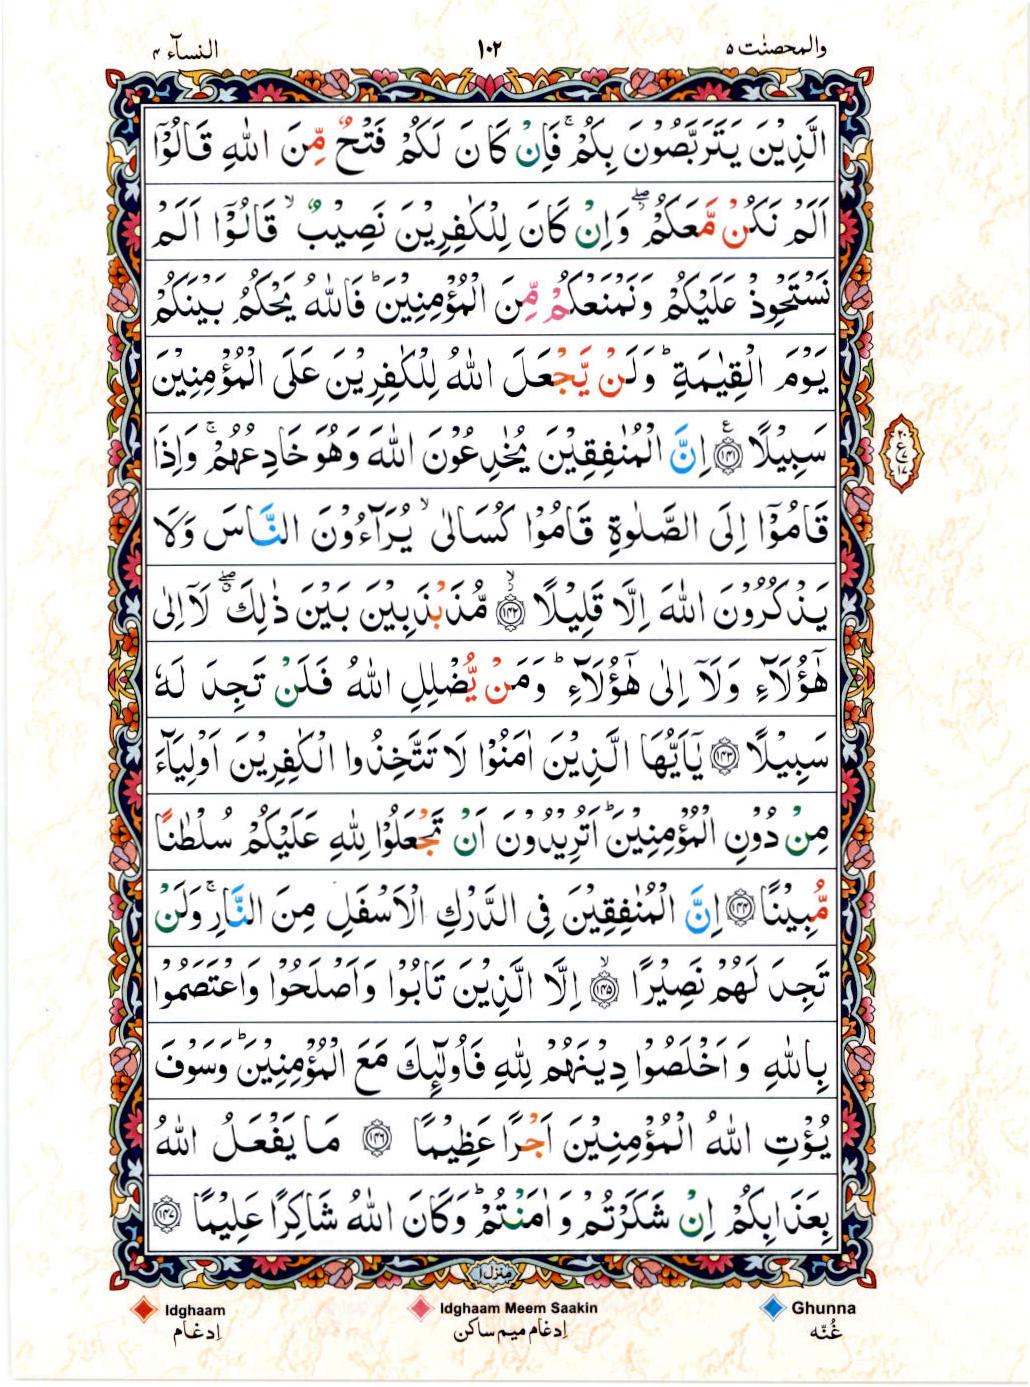 والمحصنٰت ٥ ١٠٢ النسآء ٤
الَّذِيْنَ يَتَرَبَّصُوْنَ بِكُمْ ۚ فَاِنْ كَانَ لَكُمْ فَتْحٌ مِّنَ اللّٰهِ قَالُوْۤا
اَلَمْ نَكُنْ مَّعَكُمْ ۖ وَاِنْ كَانَ لِلْكٰفِرِيْنَ نَصِيْبٌ ۙ قَالُوْۤا اَلَمْ
نَسْتَحْوِذْ عَلَيْكُمْ وَنَمْنَعْكُمْ مِّنَ الْمُؤْمِنِيْنَ ؕ فَاللّٰهُ يَحْكُمُ بَيْنَكُمْ
يَوْمَ الْقِيٰمَةِ ؕ وَلَنْ يَّجْعَلَ اللّٰهُ لِلْكٰفِرِيْنَ عَلَى الْمُؤْمِنِيْنَ
سَبِيْلًا ﴿١٤١﴾ اِنَّ الْمُنٰفِقِيْنَ يُخٰدِعُوْنَ اللّٰهَ وَهُوَ خَادِعُهُمْ ۚ وَاِذَا
قَامُوْۤا اِلَى الصَّلٰوةِ قَامُوْا كُسَالٰى ۙ يُرَآءُوْنَ النَّاسَ وَلَا
يَذْكُرُوْنَ اللّٰهَ اِلَّا قَلِيْلًا ﴿١٤٢﴾ مُّذَبْذَبِيْنَ بَيْنَ ذٰلِكَ ۖ لَاۤ اِلٰى
هٰۤؤُلَآءِ وَلَاۤ اِلٰى هٰۤؤُلَآءِ ؕ وَمَنْ يُّضْلِلِ اللّٰهُ فَلَنْ تَجِدَ لَهٗ
سَبِيْلًا ﴿١٤٣﴾ يٰۤاَيُّهَا الَّذِيْنَ اٰمَنُوْا لَا تَتَّخِذُوا الْكٰفِرِيْنَ اَوْلِيَآءَ
مِنْ دُوْنِ الْمُؤْمِنِيْنَ ؕ اَتُرِيْدُوْنَ اَنْ تَجْعَلُوْا لِلّٰهِ عَلَيْكُمْ سُلْطٰنًا
مُّبِيْنًا ﴿١٤٤﴾ اِنَّ الْمُنٰفِقِيْنَ فِى الدَّرْكِ الْاَسْفَلِ مِنَ النَّارِ ۚ وَلَنْ
تَجِدَ لَهُمْ نَصِيْرًا ﴿١٤٥﴾ اِلَّا الَّذِيْنَ تَابُوْا وَاَصْلَحُوْا وَاعْتَصَمُوْا
بِاللّٰهِ وَاَخْلَصُوْا دِيْنَهُمْ لِلّٰهِ فَاُولٰٓئِكَ مَعَ الْمُؤْمِنِيْنَ ؕ وَسَوْفَ
يُؤْتِ اللّٰهُ الْمُؤْمِنِيْنَ اَجْرًا عَظِيْمًا ﴿١٤٦﴾ مَا يَفْعَلُ اللّٰهُ
بِعَذَابِكُمْ اِنْ شَكَرْتُمْ وَاٰمَنْتُمْ ؕ وَكَانَ اللّٰهُ شَاكِرًا عَلِيْمًا ﴿١٤٧﴾
منزل ١
Idghaam Idghaam Meem Saakin Ghunna
غُنّه اِدغام میم ساکن اِدغام